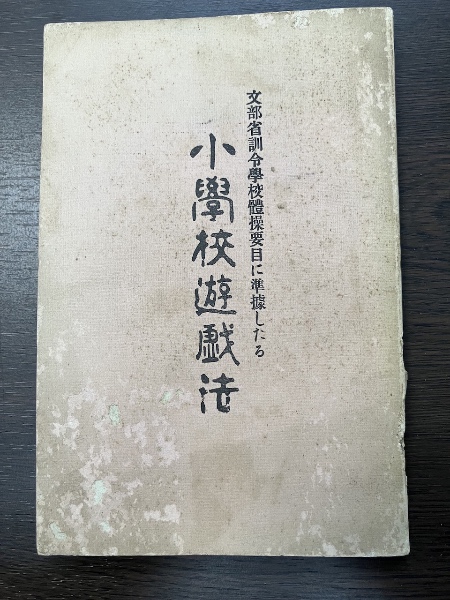 文部省訓令學校體操要目に準據したる
小學校遊戯法